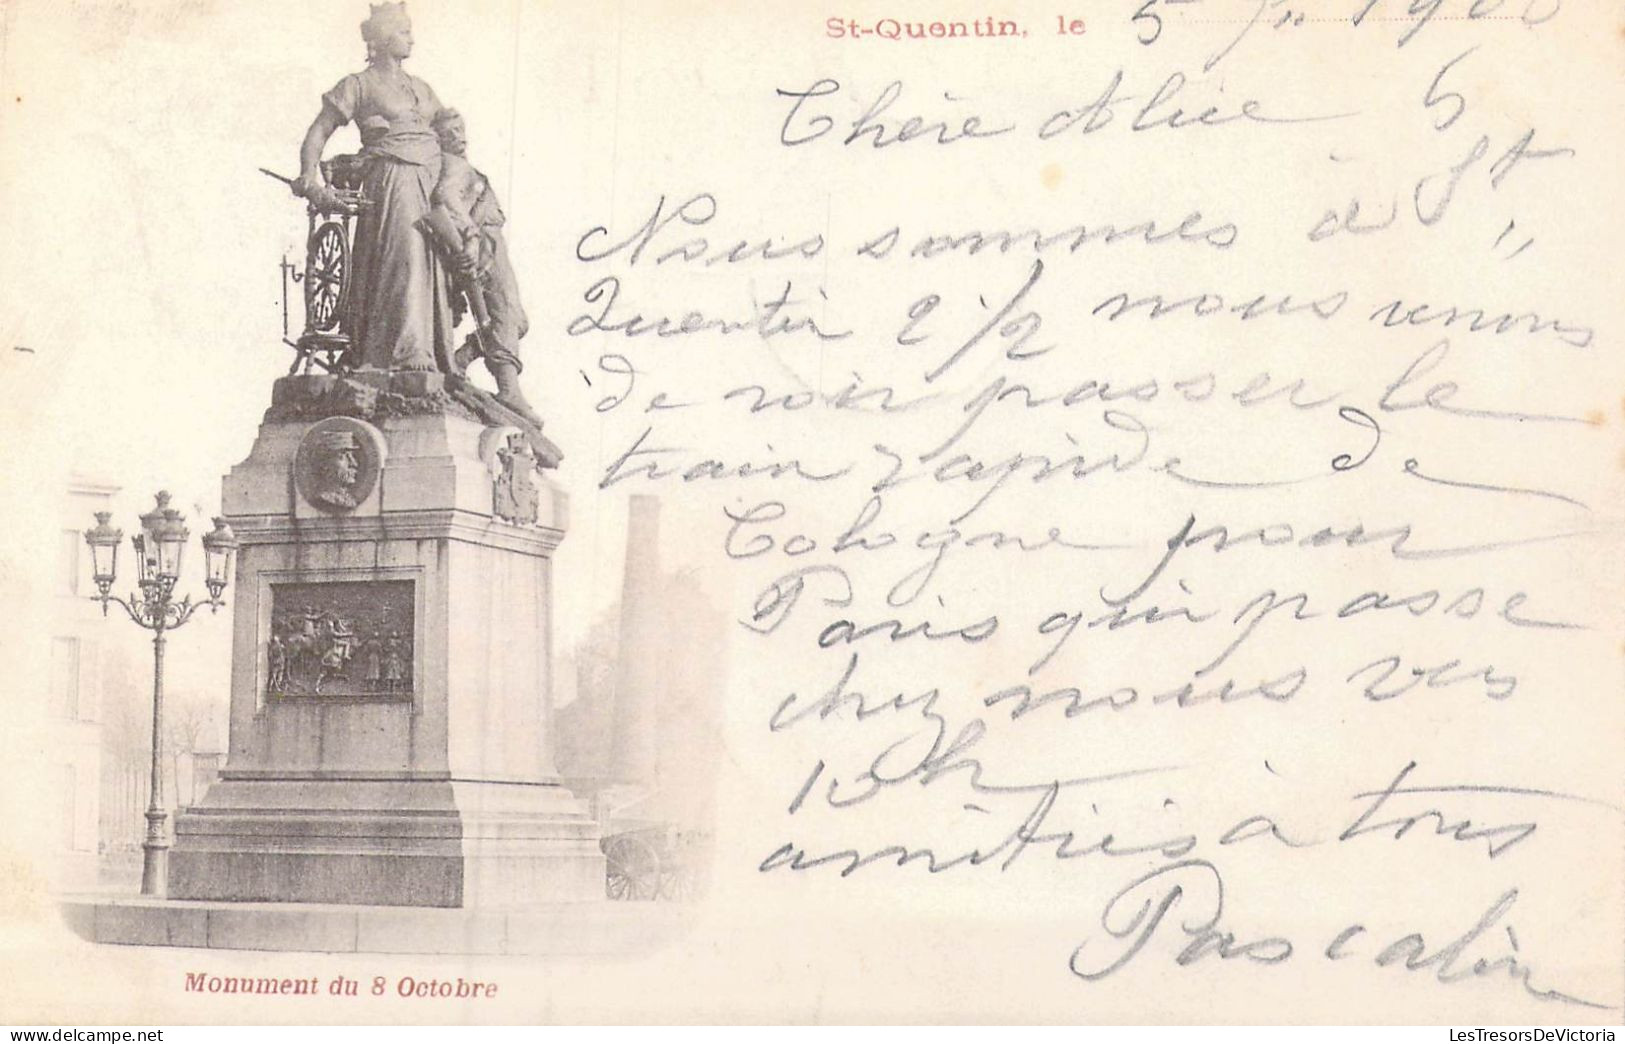 St-Quentin, le 5
Chère Alice
Nous sommes à St
Quentin 2 1/2 nous venons
de voir passer le
train rapide de
Cologne pour
Paris qui passe
chez nous vers
10h
amitiés à tous
Pascaline
Monument du 8 Octobre
LesTresorsDeVictoria